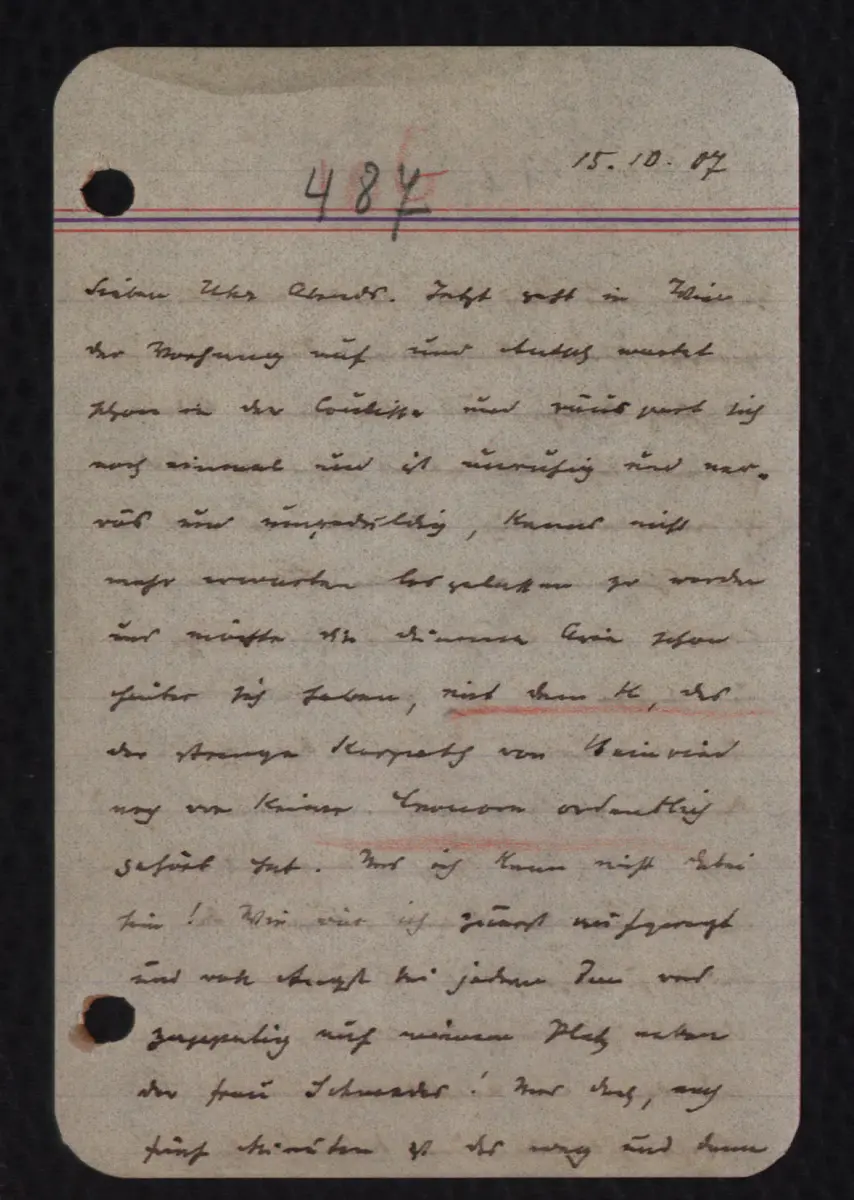 487
15.10.07
Sieben Uhr Abends. Jetzt geht in Wien
der Vorhang auf und wartet
schon in der Coulisse und räuspert sich
noch einmal und ist unruhig und ner-
vös und ungeduldig, kanns nicht
mehr erwarten losgelassen zu werden
und möchte die Arie schon
hinter sich haben, mit dem H, das
der strenge Karpath von
noch von keiner ordentlich
gehört hat. Und ich kann nicht dabei
sein! Wie wär ich zuerst aufgeregt
und voll Angst bei jedem Ton und
zappelig auf meinem Platz neben
der Frau Schneider! Und doch, nach
fünf Minuten ist das weg und dann